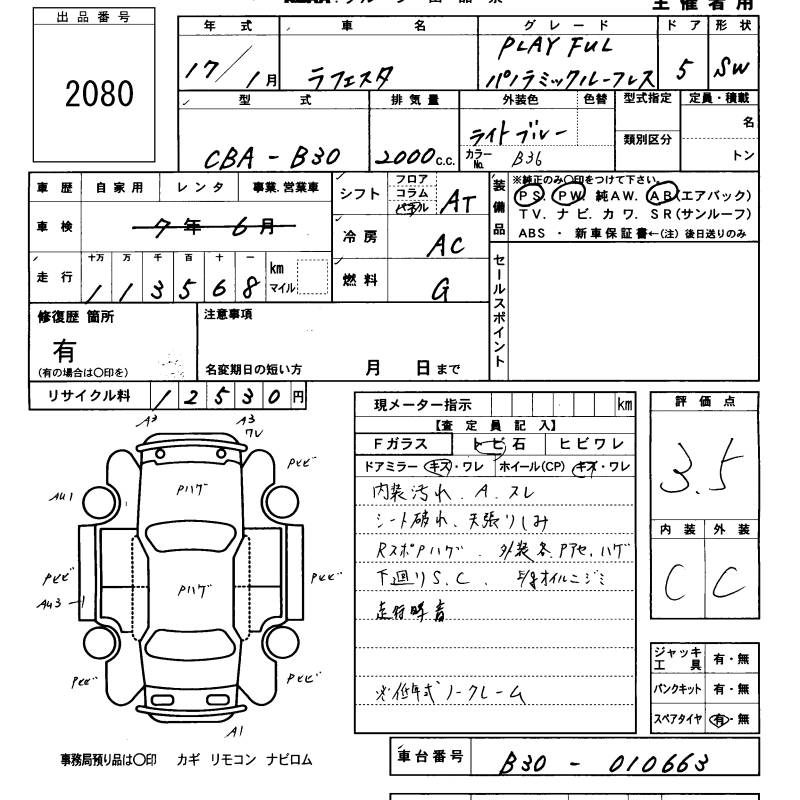 主催者用
出品番号
2080
年式 車名 グレード ドア 形状
17/1月 ラフェスタ PLAY FUL パノラミックルーフレス 5 SW
型式 排気量 外装色 色替 型式指定 定員・積載
CBA-B30 2000c.c. ライトブルー 類別区分 名
カラーNo. B36 トン
車歴 自家用 レンタ 事業.営業車
車検 7年6月
走行 十万 万 千 百 十 一 km マイル
113568
シフト フロア コラム パネル AT
冷房 AC
燃料 G
装備品 ※純正のみ〇印をつけて下さい。
PS. PW. 純AW. AB(エアバック)
TV. ナビ. カワ. SR(サンルーフ)
ABS ・ 新車保証書←(注)後日送りのみ
セールスポイント
修復歴 箇所 注意事項
有
(有の場合は〇印を) 名変期日の短い方 月 日まで
リサイクル料 12530円
現メーター指示 km
【査定員記入】
Fガラス トビ石 ヒビワレ
ドアミラー キズ・ワレ ホイール(CP) キズ・ワレ
内装汚れ、A、スレ
シート破れ、天張りしみ
RスポPハゲ、外装各、Pアセ、ハゲ
下廻りS、C、 E/gオイルニジミ
走行
※低年式ノークレーム
評価点
3.5
内装 外装
C C
ジャッキ工具 有・無
パンクキット 有・無
スペアタイヤ 有・無
A3 A3
ワレ
Pヒビ
Pハゲ
AU1
Pヒビ Pハゲ Pヒビ
AU3
Pヒビ Pヒビ
A1
事務局預り品は〇印 カギ リモコン ナビロム
車台番号 B30 - 010663